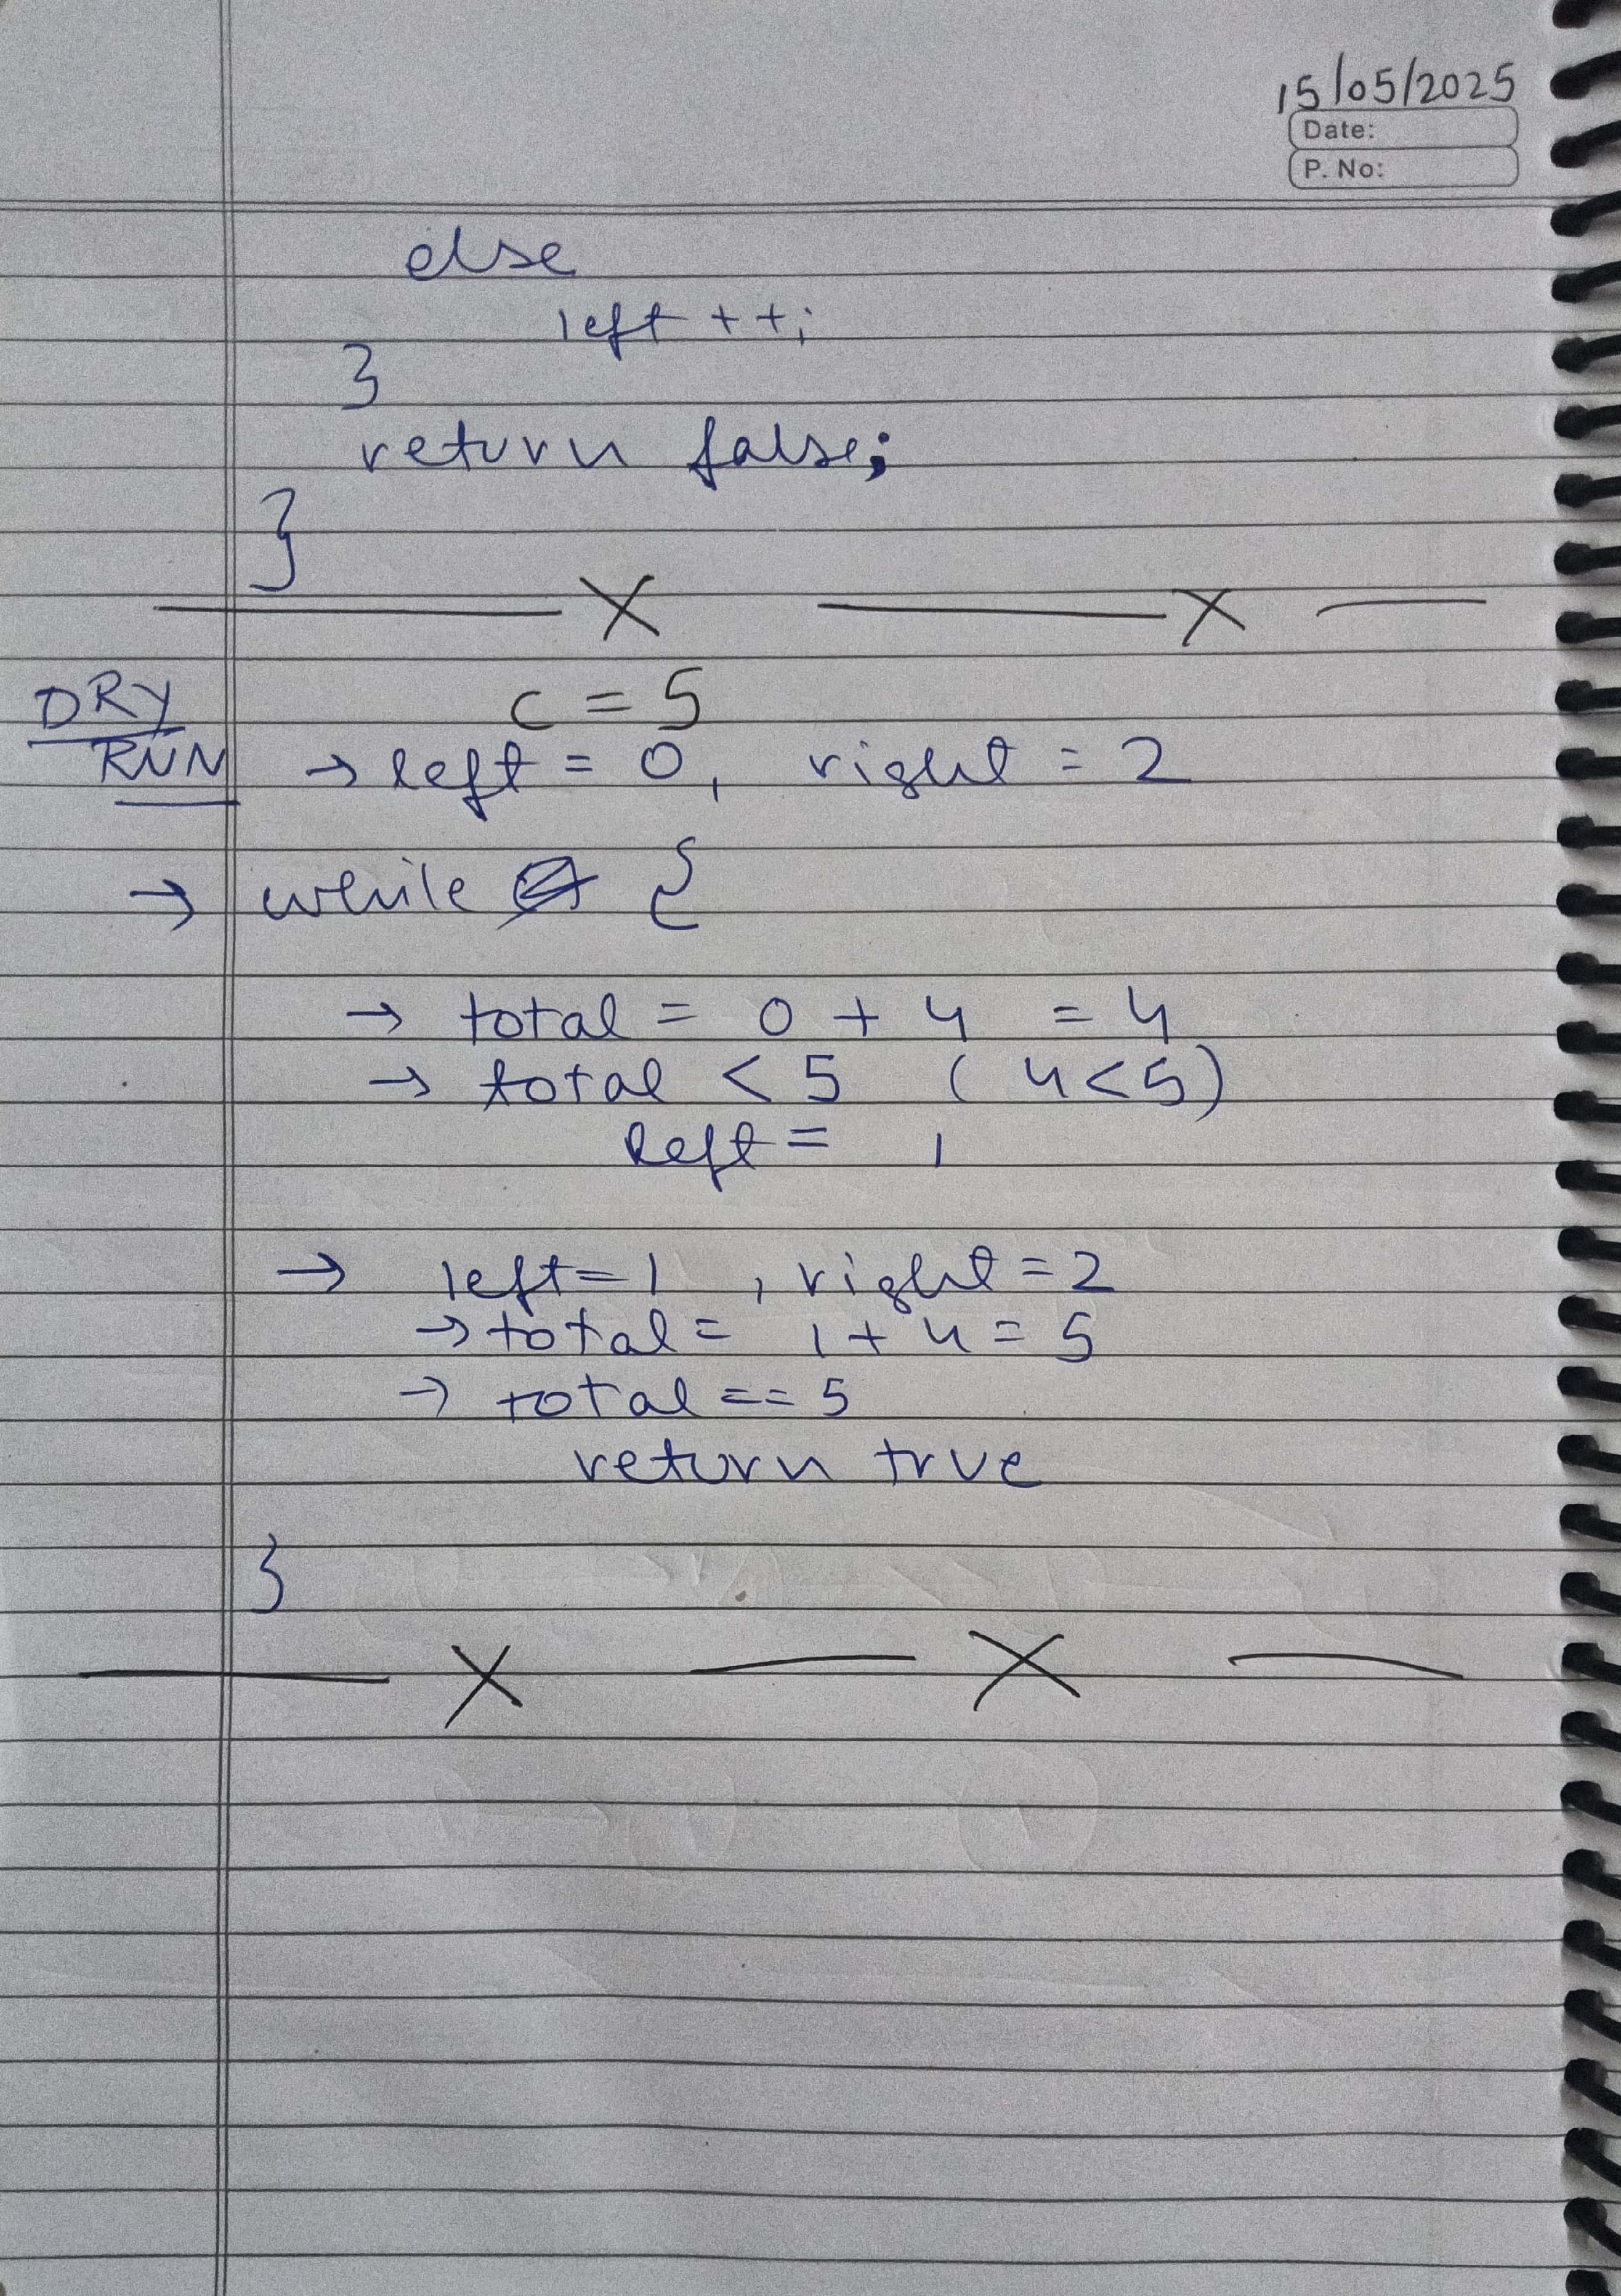 15/05/2025
Date:
P. No:
else
left ++;
}
return false;
}
—— X —— X ——
DRY
RUN
c = 5
→ left = 0, right = 2
→ while {
→ total = 0 + 4 = 4
→ total < 5 (4<5)
left = 1
→ left = 1 , right = 2
→ total = 1 + 4 = 5
→ total == 5
return true
}
—— X —— X ——